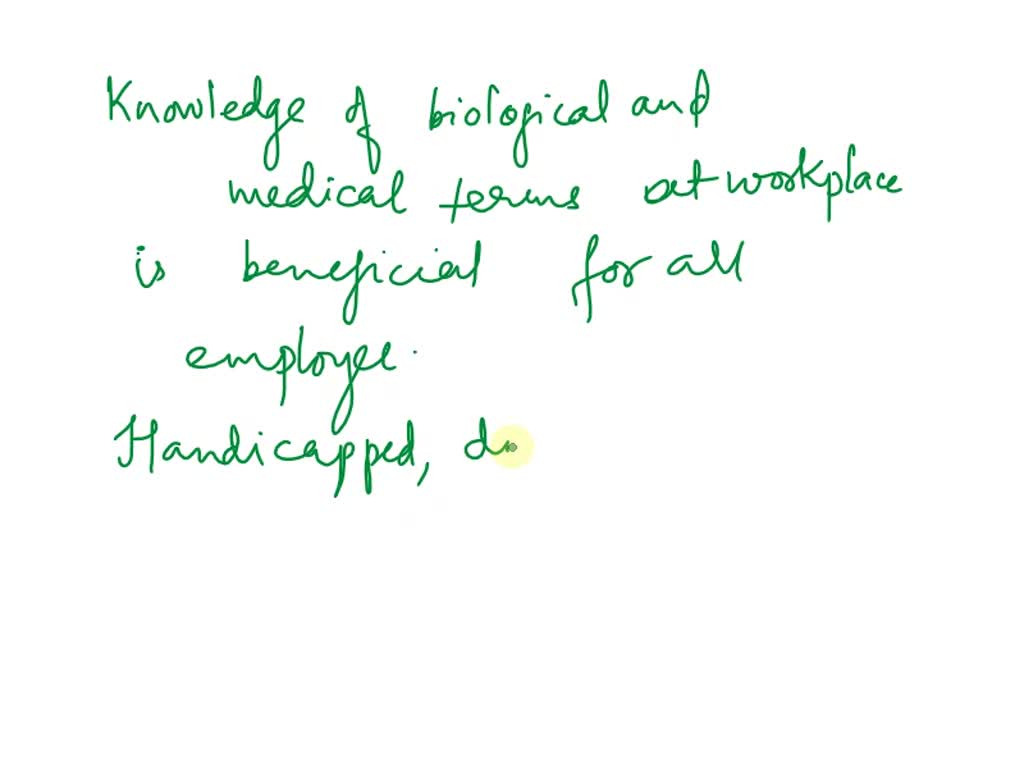 Knowledge of biological and
medical terms at workplace
is beneficial for all
employee.
Handicapped,